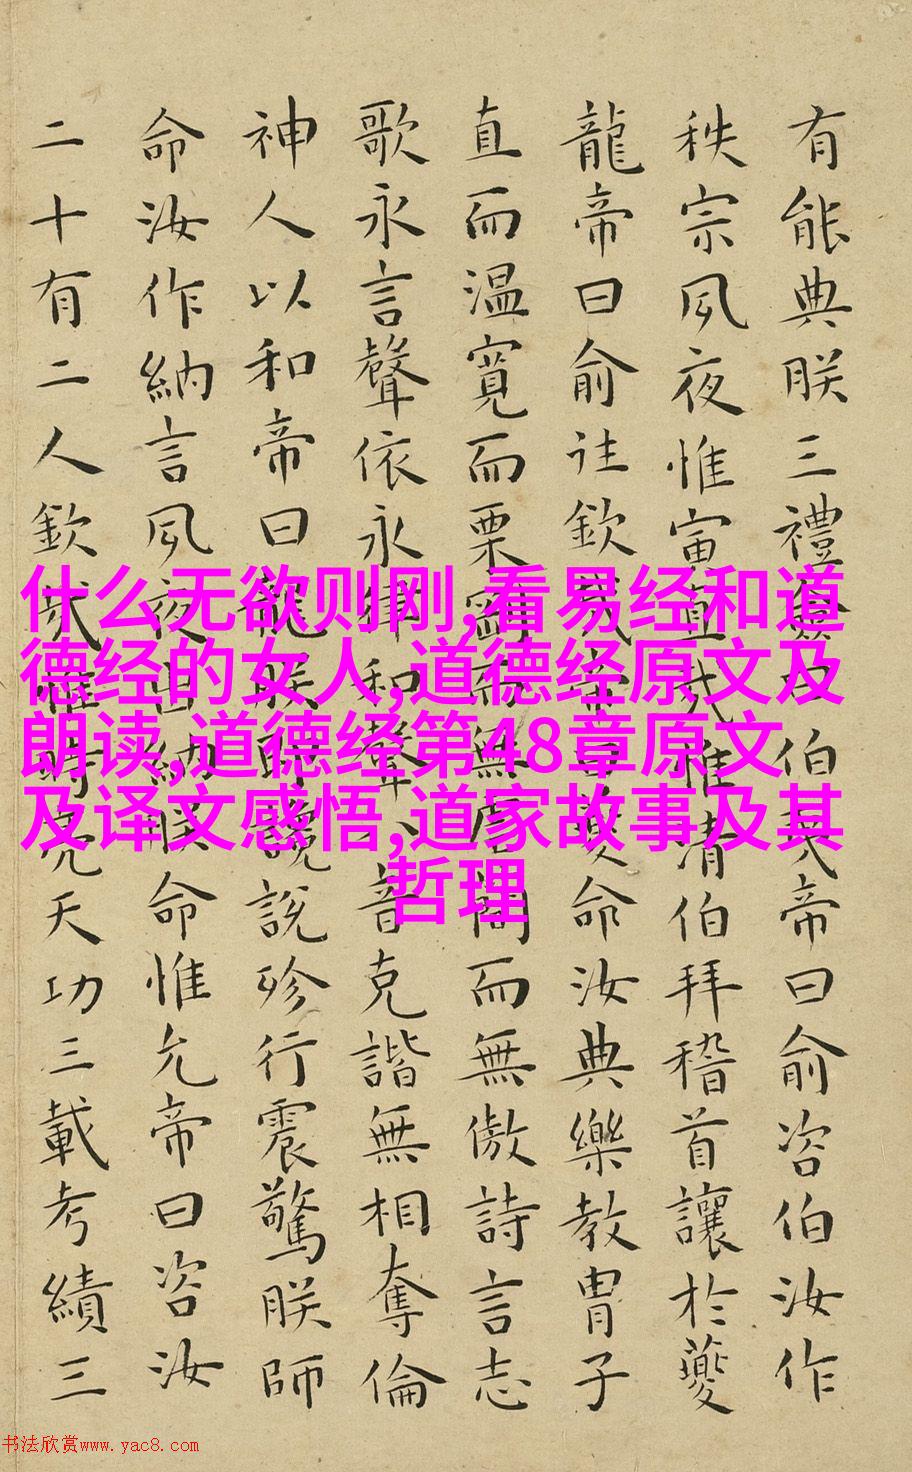 有能典朕三禮僉曰伯夷帝曰俞咨伯汝作
秩宗夙夜惟寅直哉惟清伯拜稽首讓於夔
龍帝曰俞往欽哉帝曰夔命汝典樂教胄子
直而温寬而栗剛而無虐簡而無傲詩言志
歌永言聲依永律和聲八音克諧無相奪倫
神人以和帝曰龍朕堲讒說殄行震驚朕師
命汝作納言夙夜出納朕命惟允帝曰咨汝
二十有二人欽哉惟時亮天功三載考績三
什么无欲则刚,看易经和道
德经的女人,道德经原文及
朗读,道德经第48章原文
及译文感悟,道家故事及其
哲理
书法欣赏www.yac8.com